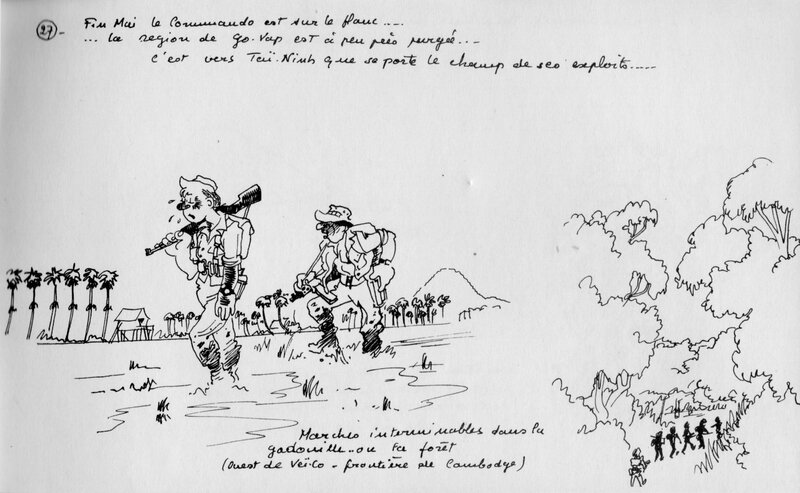 27 - Fin Mai le Commando est sur le flanc....
... la region de Go-Vap est à peu près purgée...
c'est vers Taÿ-Ninh que se porte le champ de ses exploits....
Marches interminables dans la
gadouille.. ou la forêt
(Ouest de Veï-Co - frontière de Cambodge)